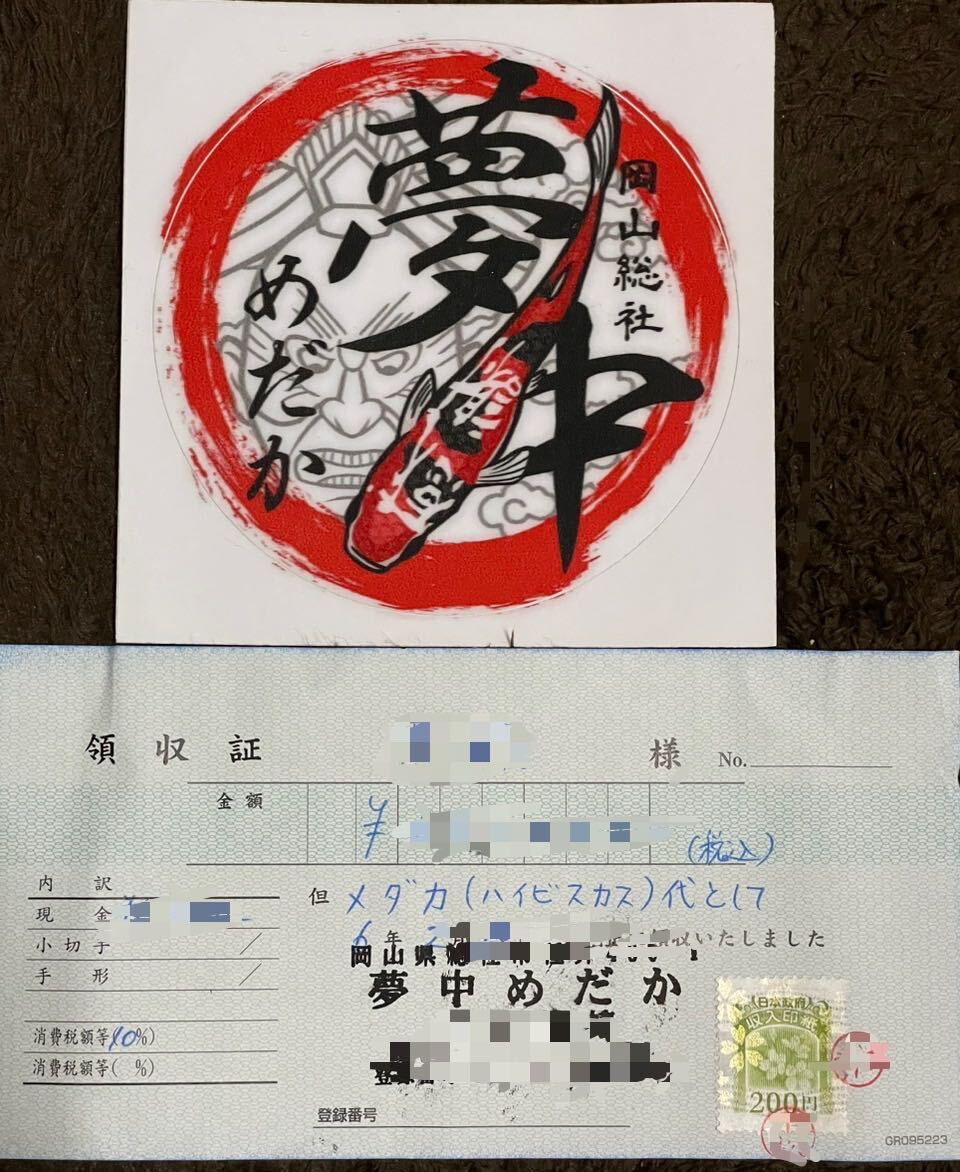 夢中
めだか
岡山総社
領収証
様 No.
金額
¥
(税込)
内訳
現金
小切手
手形
消費税額等(10%)
消費税額等( %)
但 メダカ(ハイビスカス)代として
6年2月
収いたしました
岡山県総社市
夢中めだか
登録番号
日本政府
収入印紙
200円
GR095223